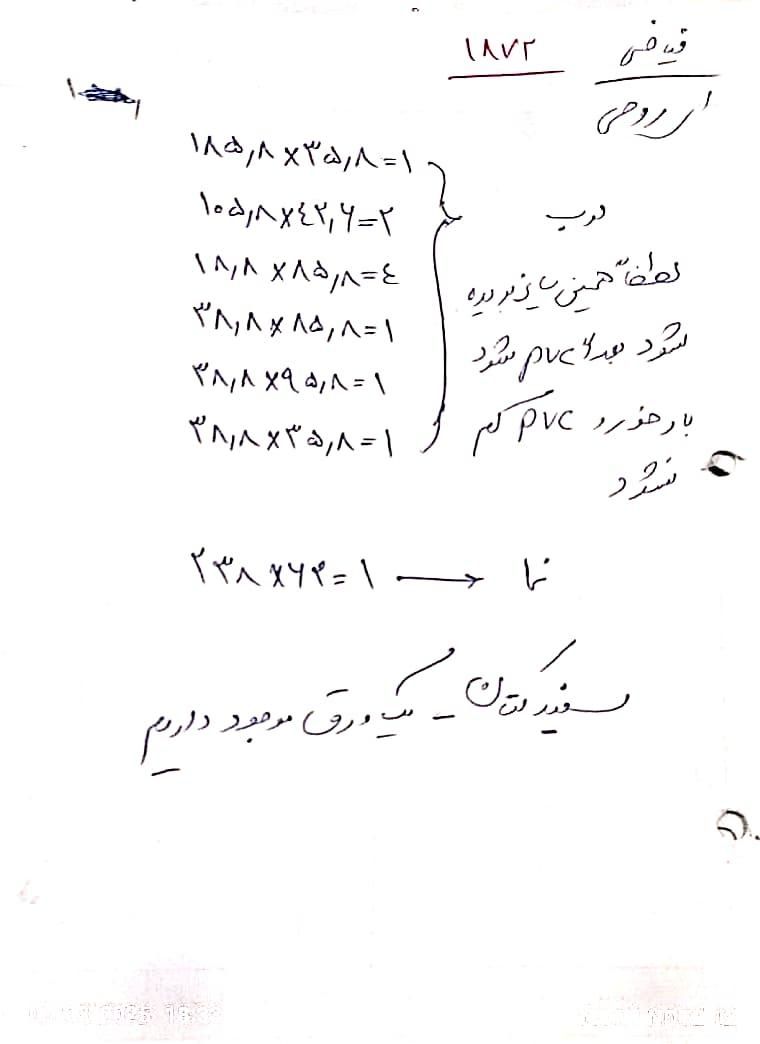 فیاضی ۱۸۷۲
روحی
۱۸۵,۸ × ۳۵,۸ = ۱
۱۰۵,۸ × ٤۲,۶ = ۲
۱۸,۸ × ۸۵,۸ = ٤
۳۸,۸ × ۸۵,۸ = ۱
۳۸,۸ × ۹۵,۸ = ۱
۳۸,۸ × ۳۵,۸ = ۱
درب
لطفاً همین سایز بریده
شود بعداً pvc شود
بار خور و pvc کم
نشود
۲۳۸ × ۶۴ = ۱ → نما
سفید کتان - یک ورق موجود داریم